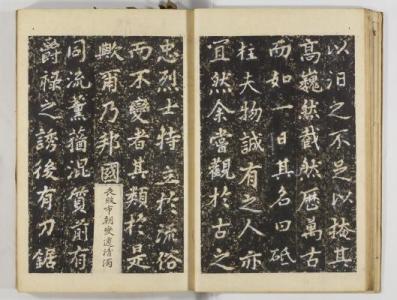 以汩之不足以掩其
高巍然截然歷萬古
而如一日其名曰砥
柱夫物誠有之人亦
宜然余嘗觀於古之
忠烈士特立於流俗
而不變者其類於是
歟爾乃邦國喪敗市朝變遷清濁
同流薰蕕混質前有
爵祿之誘後有刀鋸